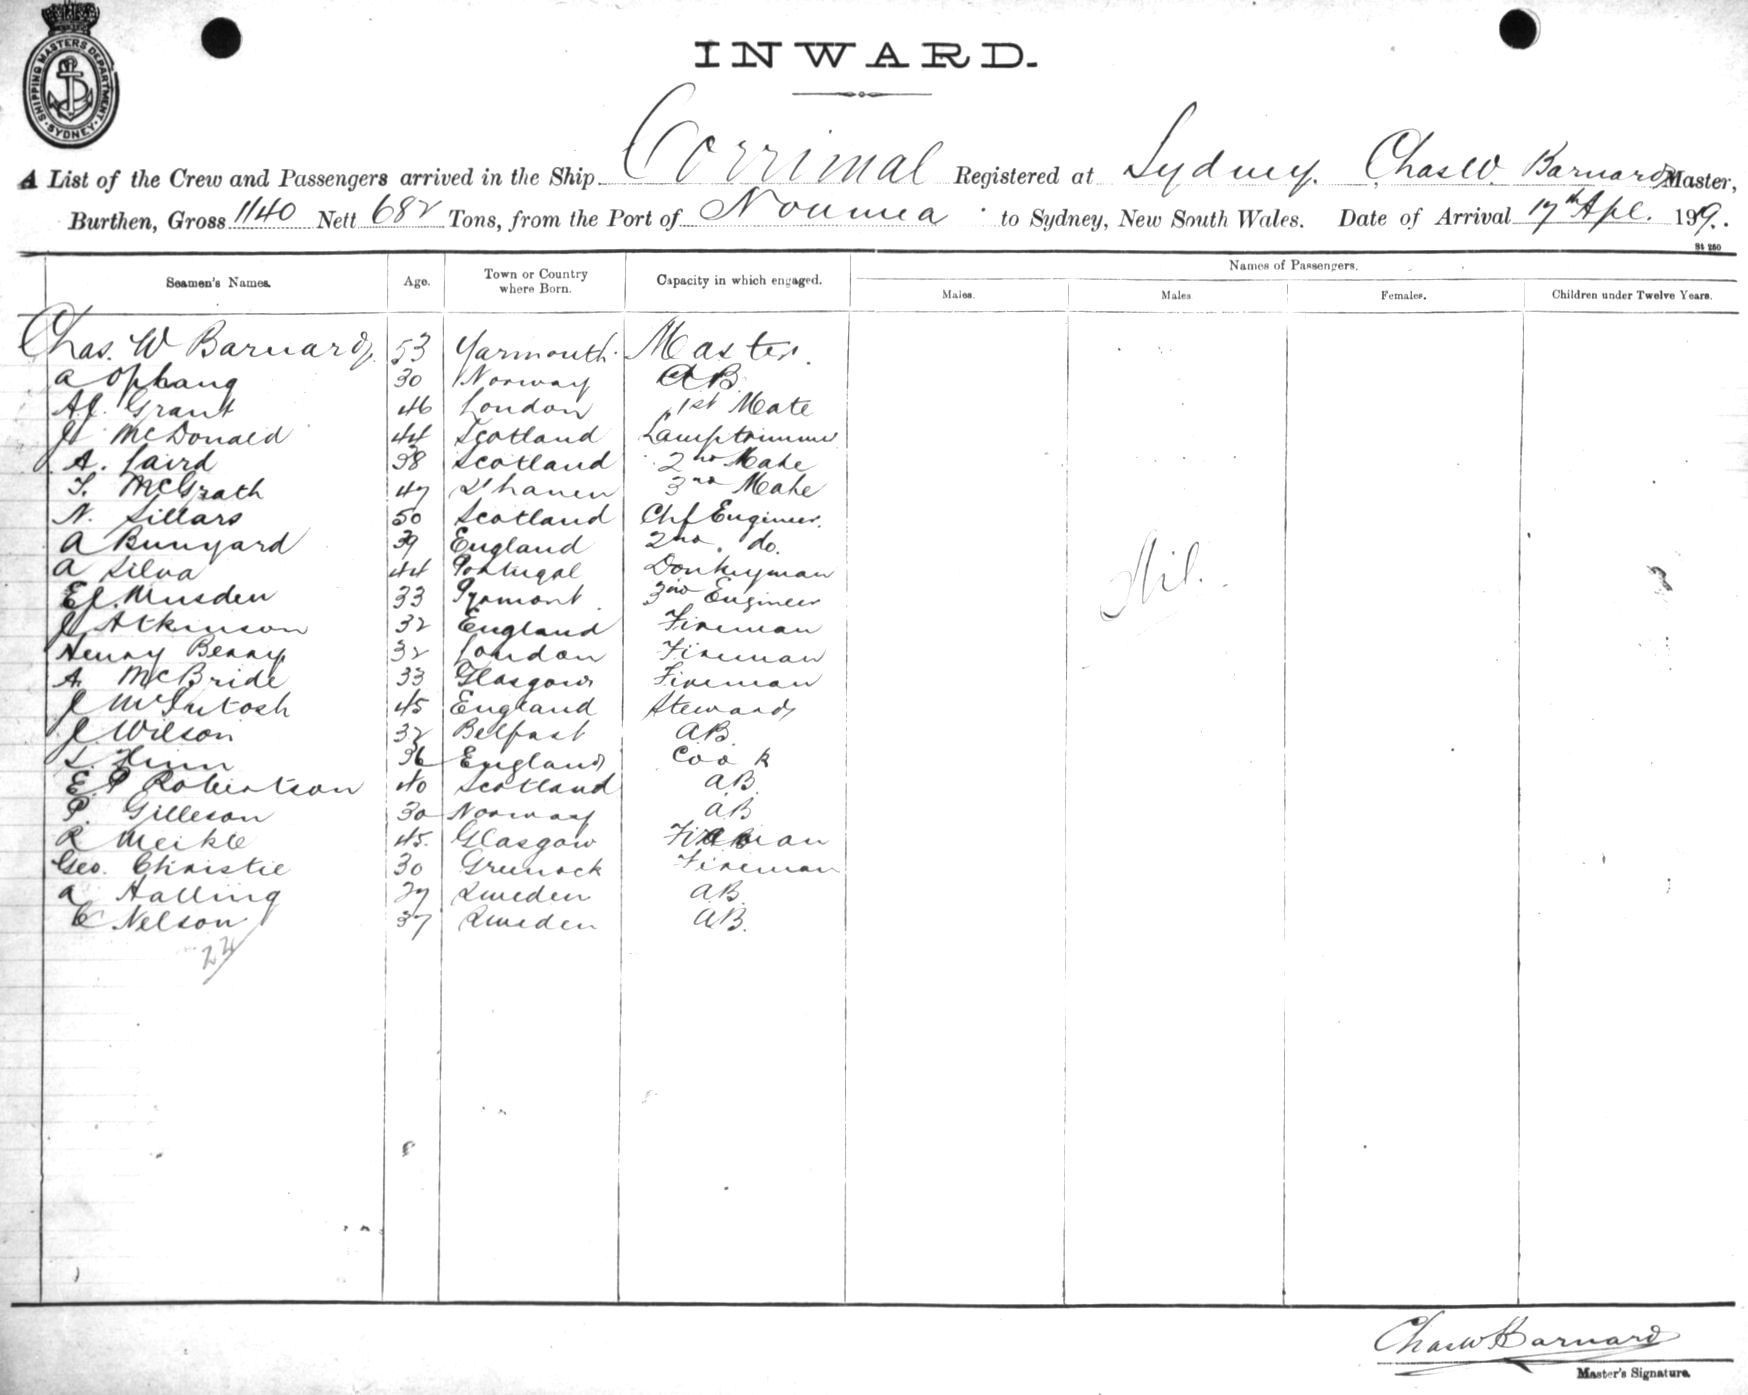 SHIPPING MASTERS DEPARTMENT. SYDNEY.
INWARD.
A List of the Crew and Passengers arrived in the Ship Corrimal Registered at Sydney. Chas W. Barnard Master,
Burthen, Gross 1140 Nett 682 Tons, from the Port of Noumea to Sydney, New South Wales. Date of Arrival 17th Apl. 199.
St 250
Seamen's Names. Age. Town or Country where Born. Capacity in which engaged. Names of Passengers.
Males. Males Females. Children under Twelve Years.
Chas. W Barnard 53 Yarmouth Master
A Ophaug 30 Norway AB
A.J. Grant 46 London 1st Mate
J McDonald 44 Scotland Lamptrimmer
A. Laird 38 Scotland 2nd Mate
T. McGrath 47 3rd Mate
N. Sillars 50 Scotland Chf Engineer.
A Bunyard 39 England 2nd do.
A Silva 44 Portugal Donkeyman
E.J. Musden 33 Pyrmont 3rd Engineer
Nil.
J Atkinson 32 England Fireman
Henry Berry 32 London Fireman
A. McBride 33 Glasgow Fireman
J McIntosh 45 England Steward
J. Wilson 32 Belfast AB
36 England Cook
E P Robertson 40 Scotland AB
P. Gilleson 30 Norway AB
R Meikle 45. Glasgow Fireman
Geo. Christie 30 Greenock Fireman
A Halling 27 Sweden AB
C Nelson 37 Sweden AB.
22
Chas W Barnard
Master's Signature.